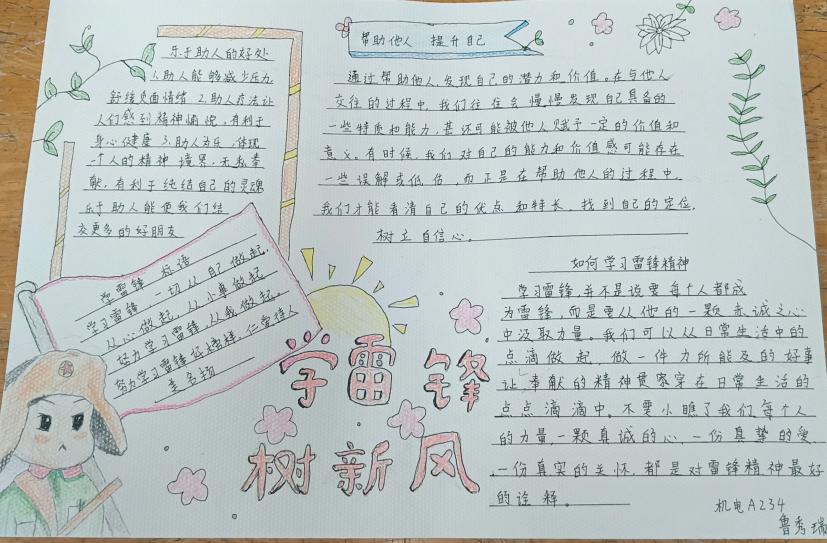 乐于助人的好处
1.助人能够减少压力
舒缓负面情绪 2.助人疗法让
人们感到精神愉悦,有利于
身心健康 3.助人为乐,体现
一个人的精神境界,无私奉
献,有利于纯结自己的灵魂
乐于助人能使我们结
交更多的好朋友
帮助他人 提升自己
通过帮助他人,发现自己的潜力和价值。在与他人
交往的过程中,我们往往会慢慢发现自己具备的
一些特质和能力,甚还可能被他人赋予一定的价值和
意义。有时候,我们对自己的能力和价值感可能存在
一些误解或低估,而正是在帮助他人的过程中,
我们才能看清自己的优点和特长,找到自己的定位,
树立自信心。
学雷锋 标语
学习雷锋,一切从自己做起,
从心做起,从小事做起
努力学习雷锋,从我做起,
努力学习雷锋好榜样,仁爱待人
美名扬
学雷锋
树新风
如何学习雷锋精神
学习雷锋,并不是说要每个人都成
为雷锋,而是要从他的一颗赤诚之心
中汲取力量。我们可以从日常生活中的
点滴做起,做一件力所能及的好事
让奉献的精神贯家穿在日常生活的
点点滴滴中。不要小瞧了我们每个人
的力量,一颗真诚的心,一份真挚的爱,
一份真实的关怀,都是对雷锋精神最好
的诠释。
机电A234
鲁秀瑞